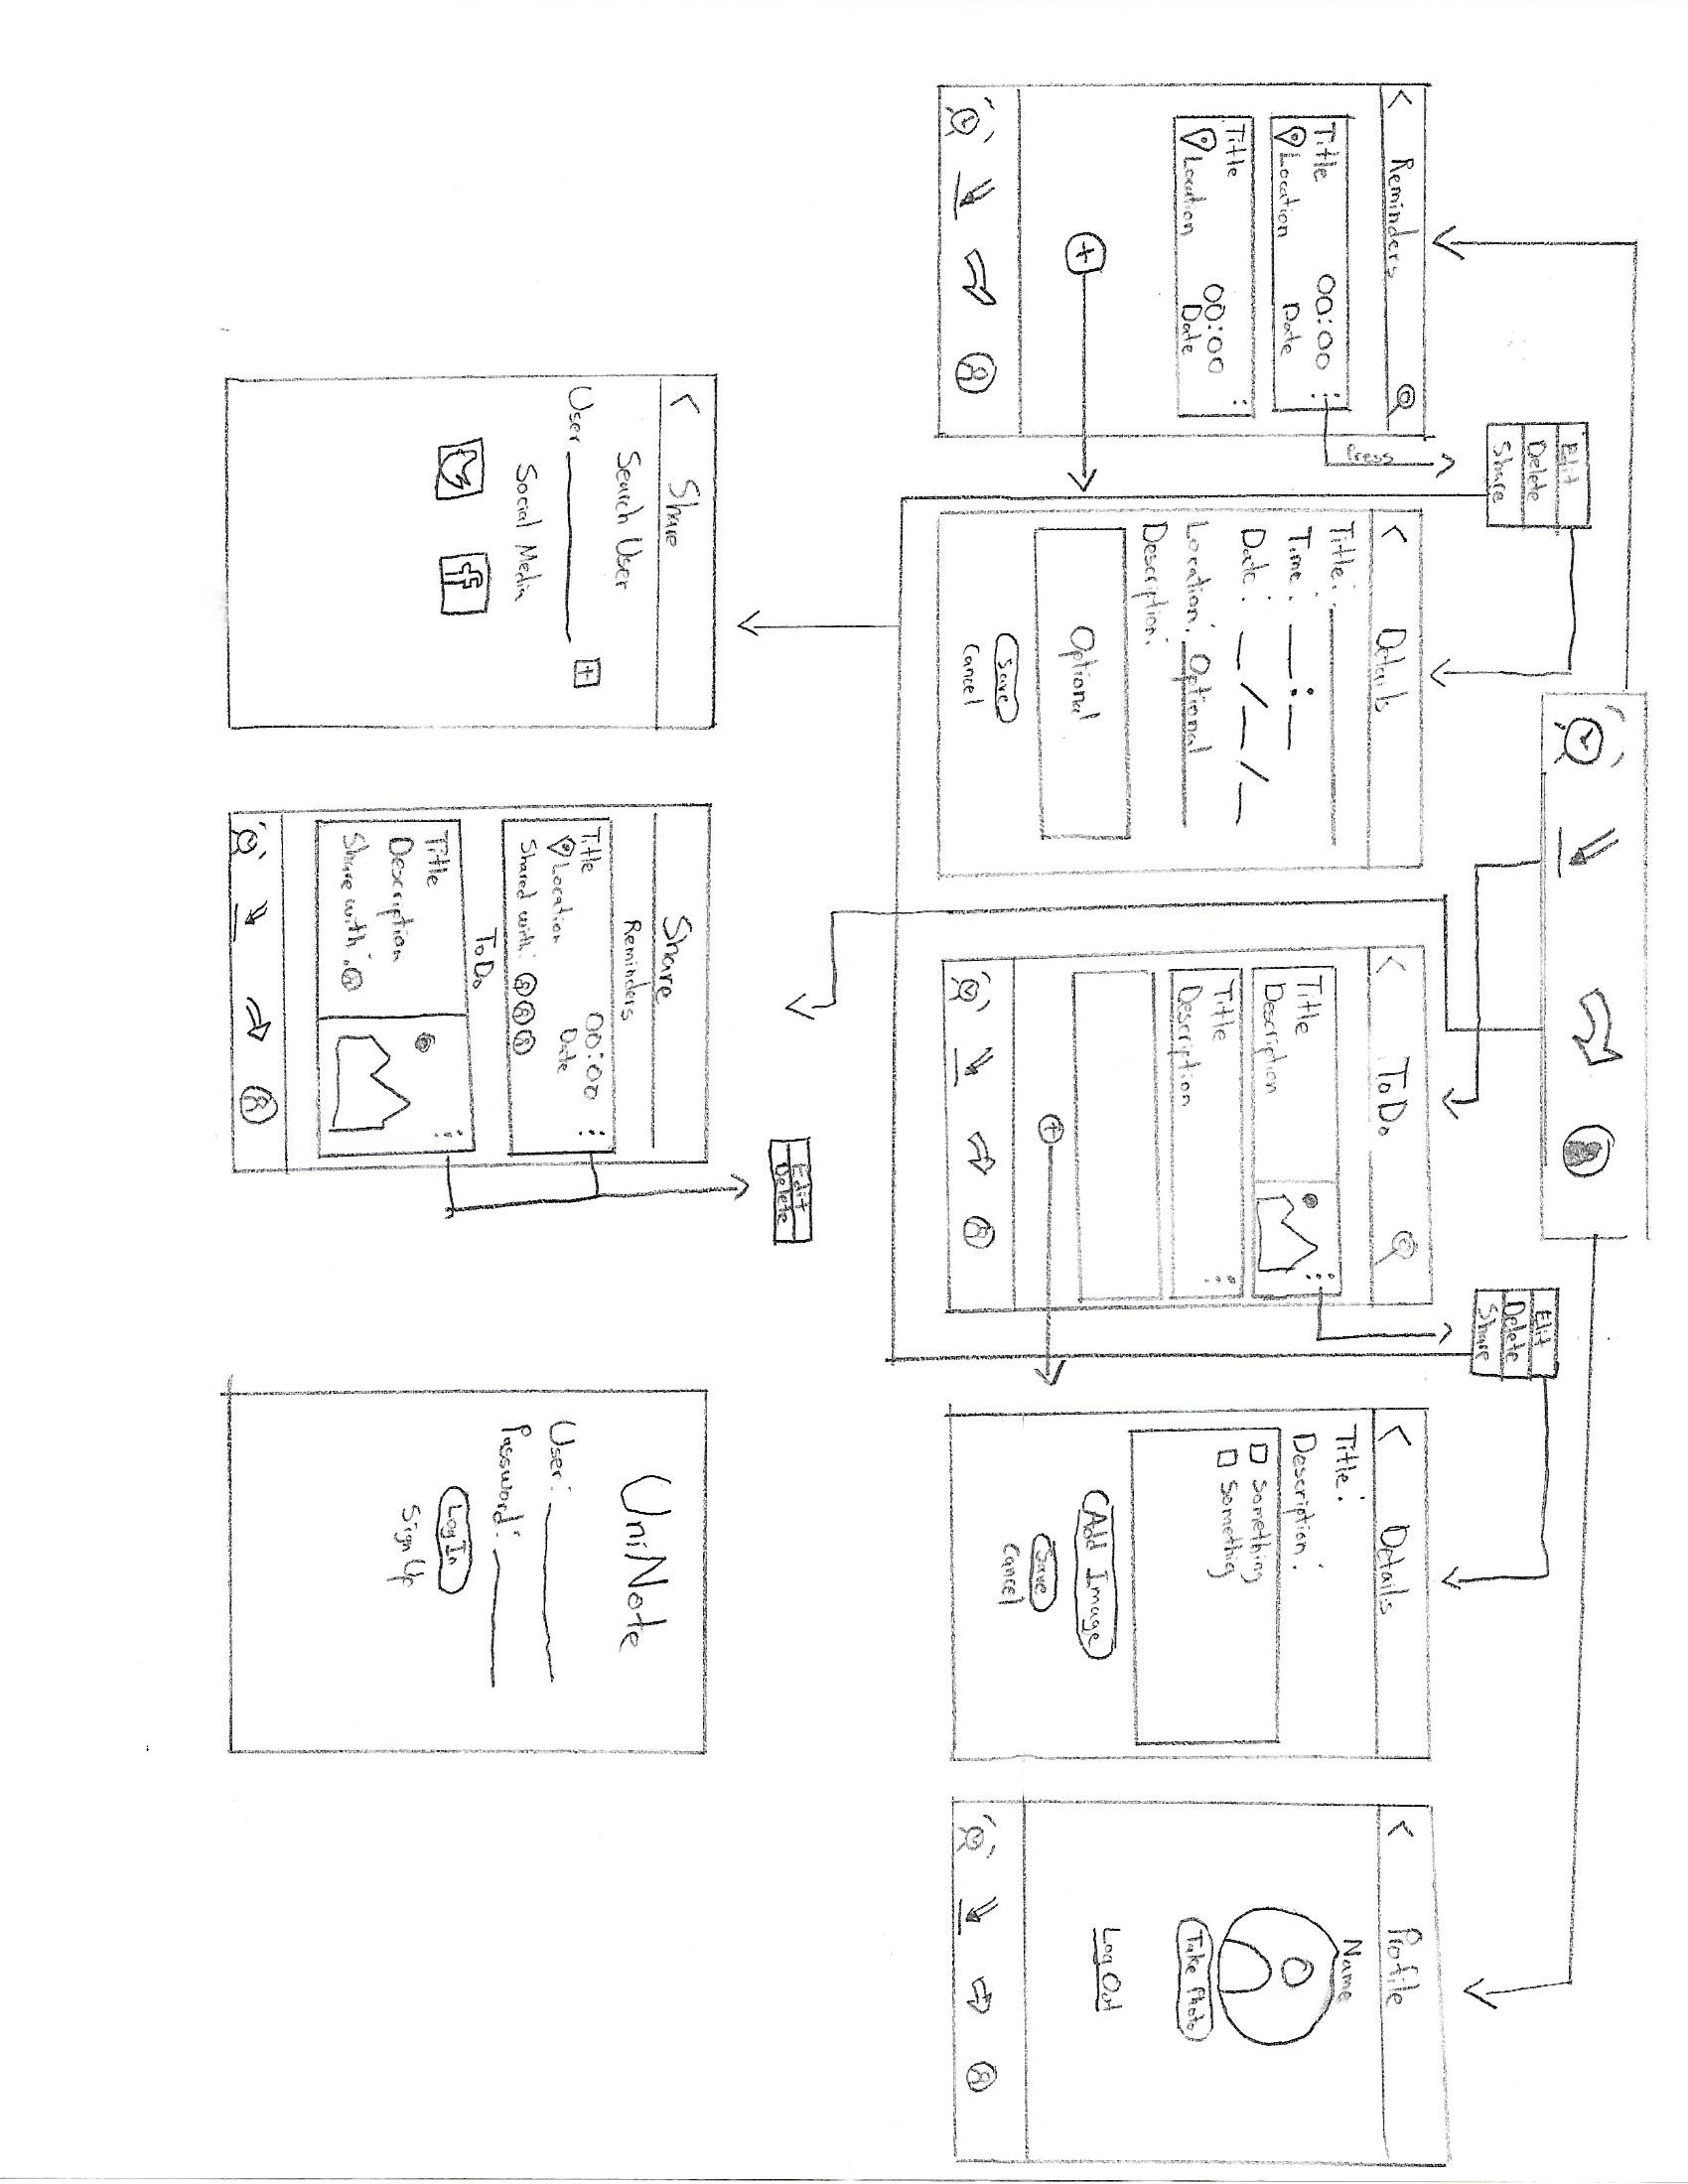 Edit
Delete
Share
Edit
Delete
Share
Reminders
Title 00:00
Location Date
Title
00:00
Location Date
Press
Details
Title:
Time: :
Date: / /
Location: Optional
Description:
Optional
Save
Cancel
ToDo
Title
Description
Title
Description
Details
Title:
Description:
Something
Somethig
Add Image
Save
Cancel
Profile
Name
Take Photo
Log Out
Edit
Delete
Share
Search User
User
Social Media
f
Share
Reminders
Title 00:00
Location Date
Shared with:
ToDo
Title
Description
Share with:
UniNote
User:
Password:
Log In
Sign Up